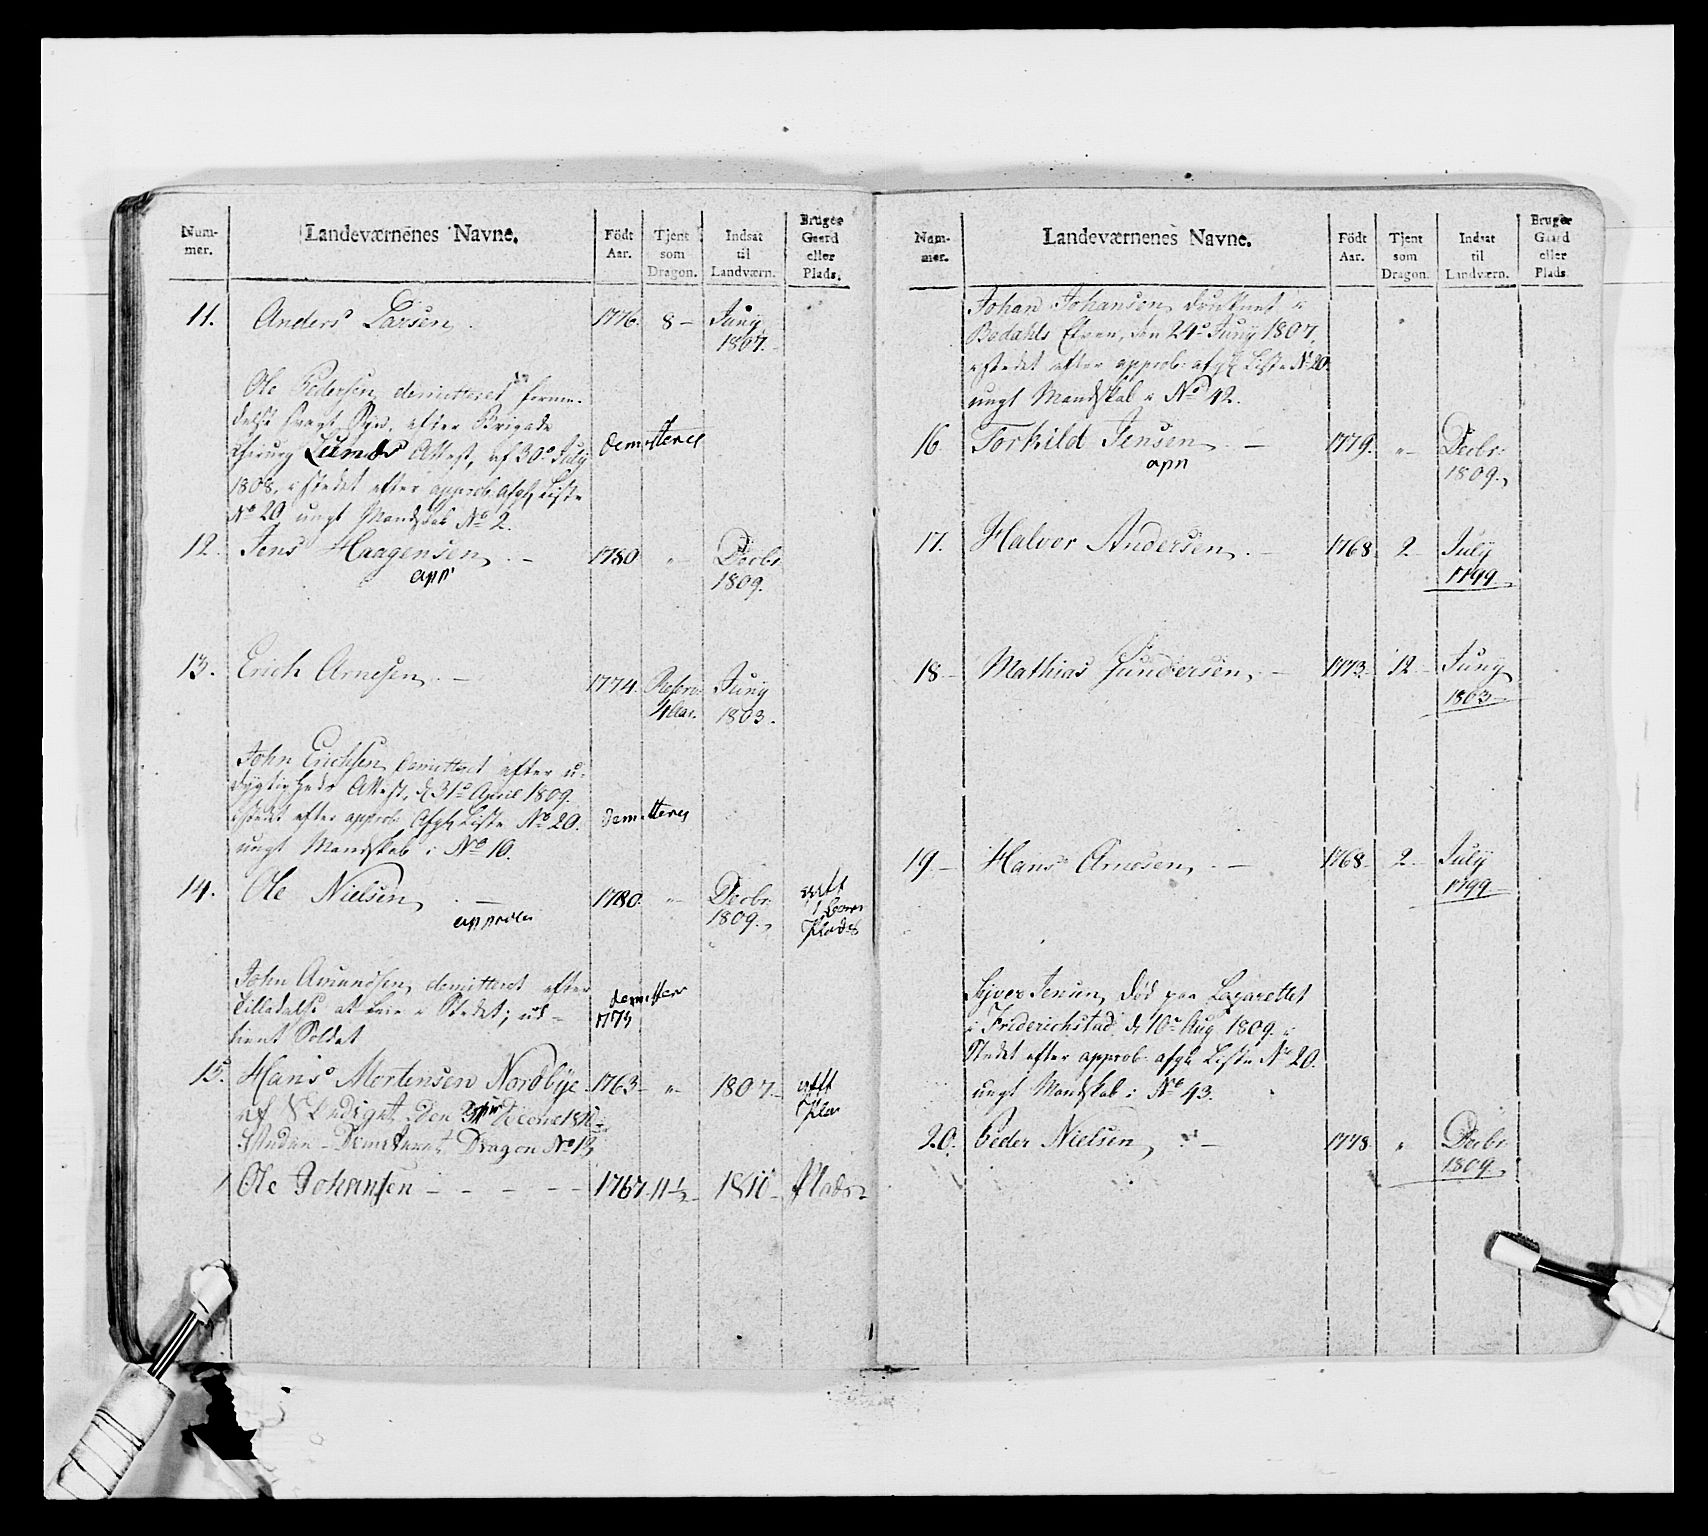 Num-
mer.
Landeværnenes Navne.
Födt
Aar.
Tjent
som
Dragon.
Indsat
til
Landværn.
Bruger
Gaard
eller
Plads.
11. Anders Larsen 1776. 8 - Juny
1807.
Ole Pedersen demitteret formedelst
svagt Syn, efter Brigade
Chirurg Lunds Attest, af 30 July
1808, i stedet efter approb: afg: Liste
No 20 ungt Mandskab No 2.
demitteret
12. Jens Haagensen - 1780 " Decbr
1809.
app
13. Erich Arnesen - 1774. Reserv Juny
4 Aar. 1803.
John Erichsen demitteret efter u-
dygtigheds Attest, d 31 April 1809.
i stedet efter approb: Afg: Liste No 20.
ungt Mandskab i No 10.
demitteres
14. Ole Nielsen - 1780. " Decbr
1809.
approb
Plads
John Amundsen demitteret efter
Tilladelse at leie i Stedet; ud-
tient Soldat
demitter
1773
15. Hans Mortensen Nordbye 1763 - " 1807 - gift
Plds
Demitteret Dragon No 13
Ole Johansen - - - - - 1767. 11½ - 1810 - Plads
Num-
mer.
Landeværnenes Navne.
Födt
Aar.
Tjent
som
Dragon.
Indsat
til
Landværn.
Bruger
Gaard
eller
Plads.
Johan Johansen druknet i
Bødahls Elven, den 24 Juny 1807,
i stedet efter approb: afg: Liste No 20.
ungt Mandskab i No 42.
16. Torkild Jensen - 1779. " Decbr:
1809.
app
17. Halvor Andersen. - 1768. 2 - July
1799.
18 - Mathias Gundersen. - 1773. 12 - Juny
1803 -
19. - Hans Arnesen. - 1768. 2 - July
1799 -
Jensen, død paa Lazarettet
i Friderichstad d 10 Aug 1809. i
Stedet efter approb: afg: Liste No 20.
ungt Mandskab i No 43.
20. Peder Nielsen, - 1778. " Decbr
1809.